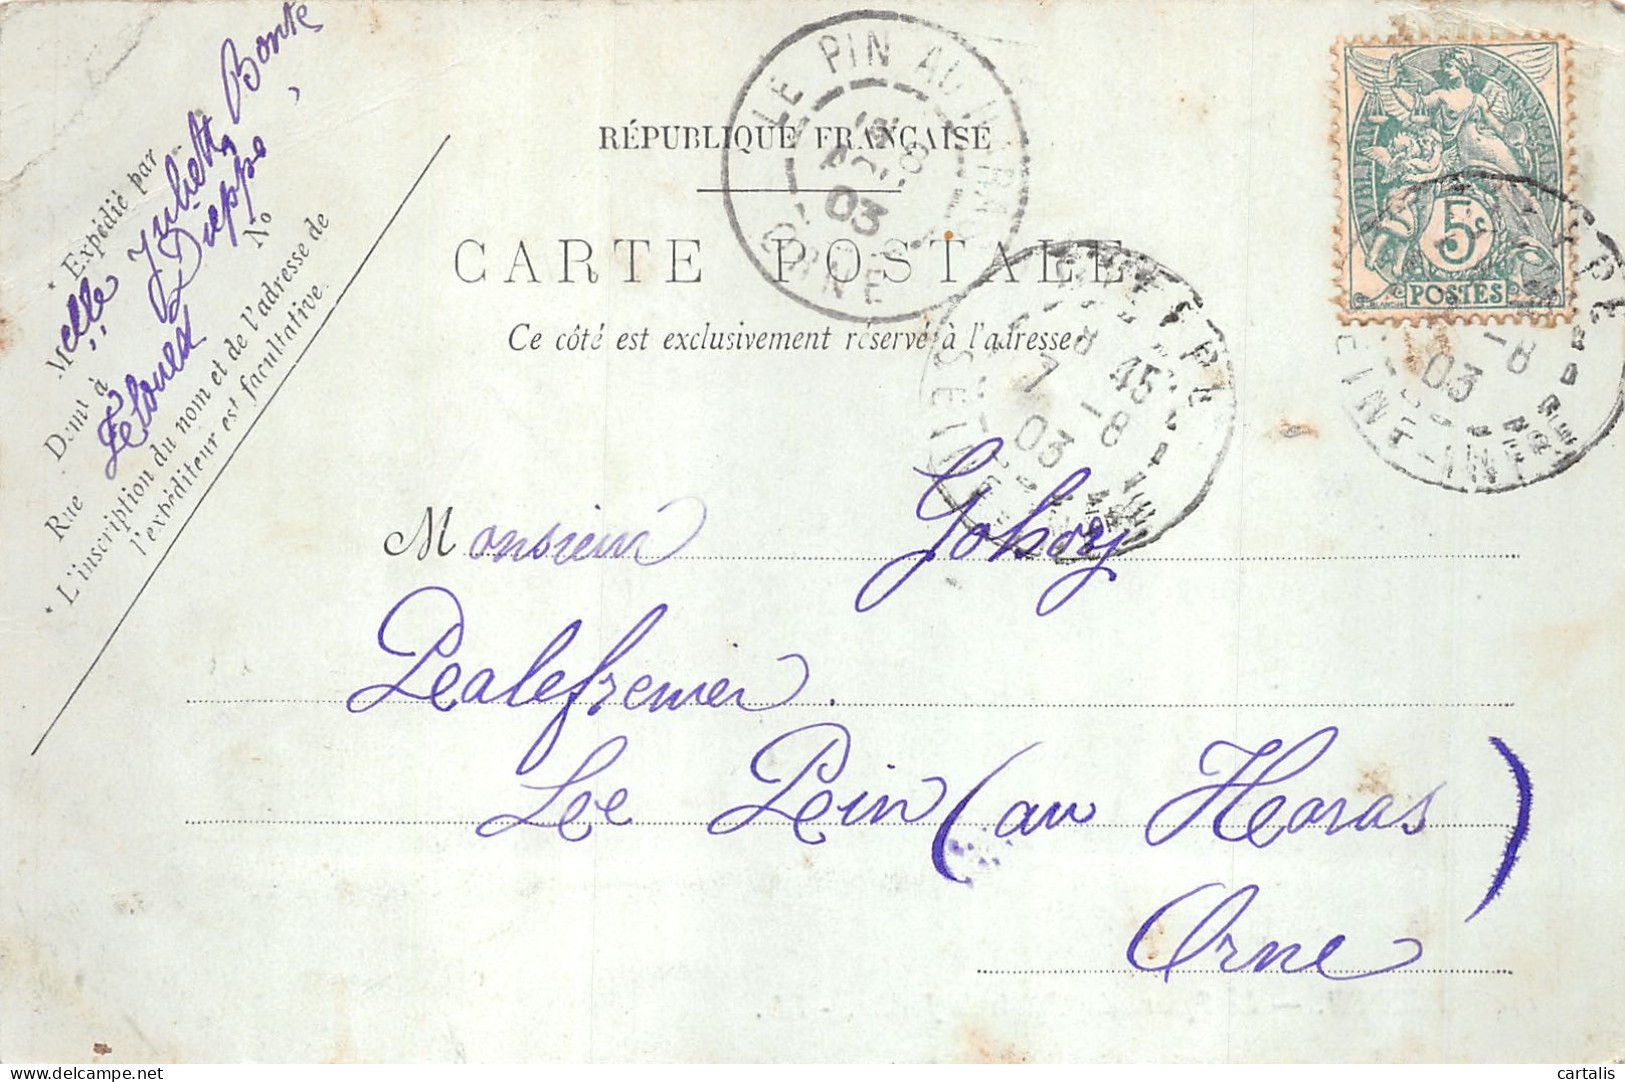 RÉPUBLIQUE FRANÇAISE
CARTE POSTALE
Ce côté est exclusivement réservé à l'adresse
* Expédié par
Melle Juliette Bonte
Dont à Dieppe
Rue No
* L'inscription du nom et de l'adresse de
l'expéditeur est facultative.
LE PIN AU HARAS
03
ORNE
DIEPPE
8 45
7 -8
03
SEINE INFRE
5c
POSTES
-8
03
Monsieur Gohory
Palefrenier.
Le Pin (au Haras)
Orne
delcampe.net
cartalis